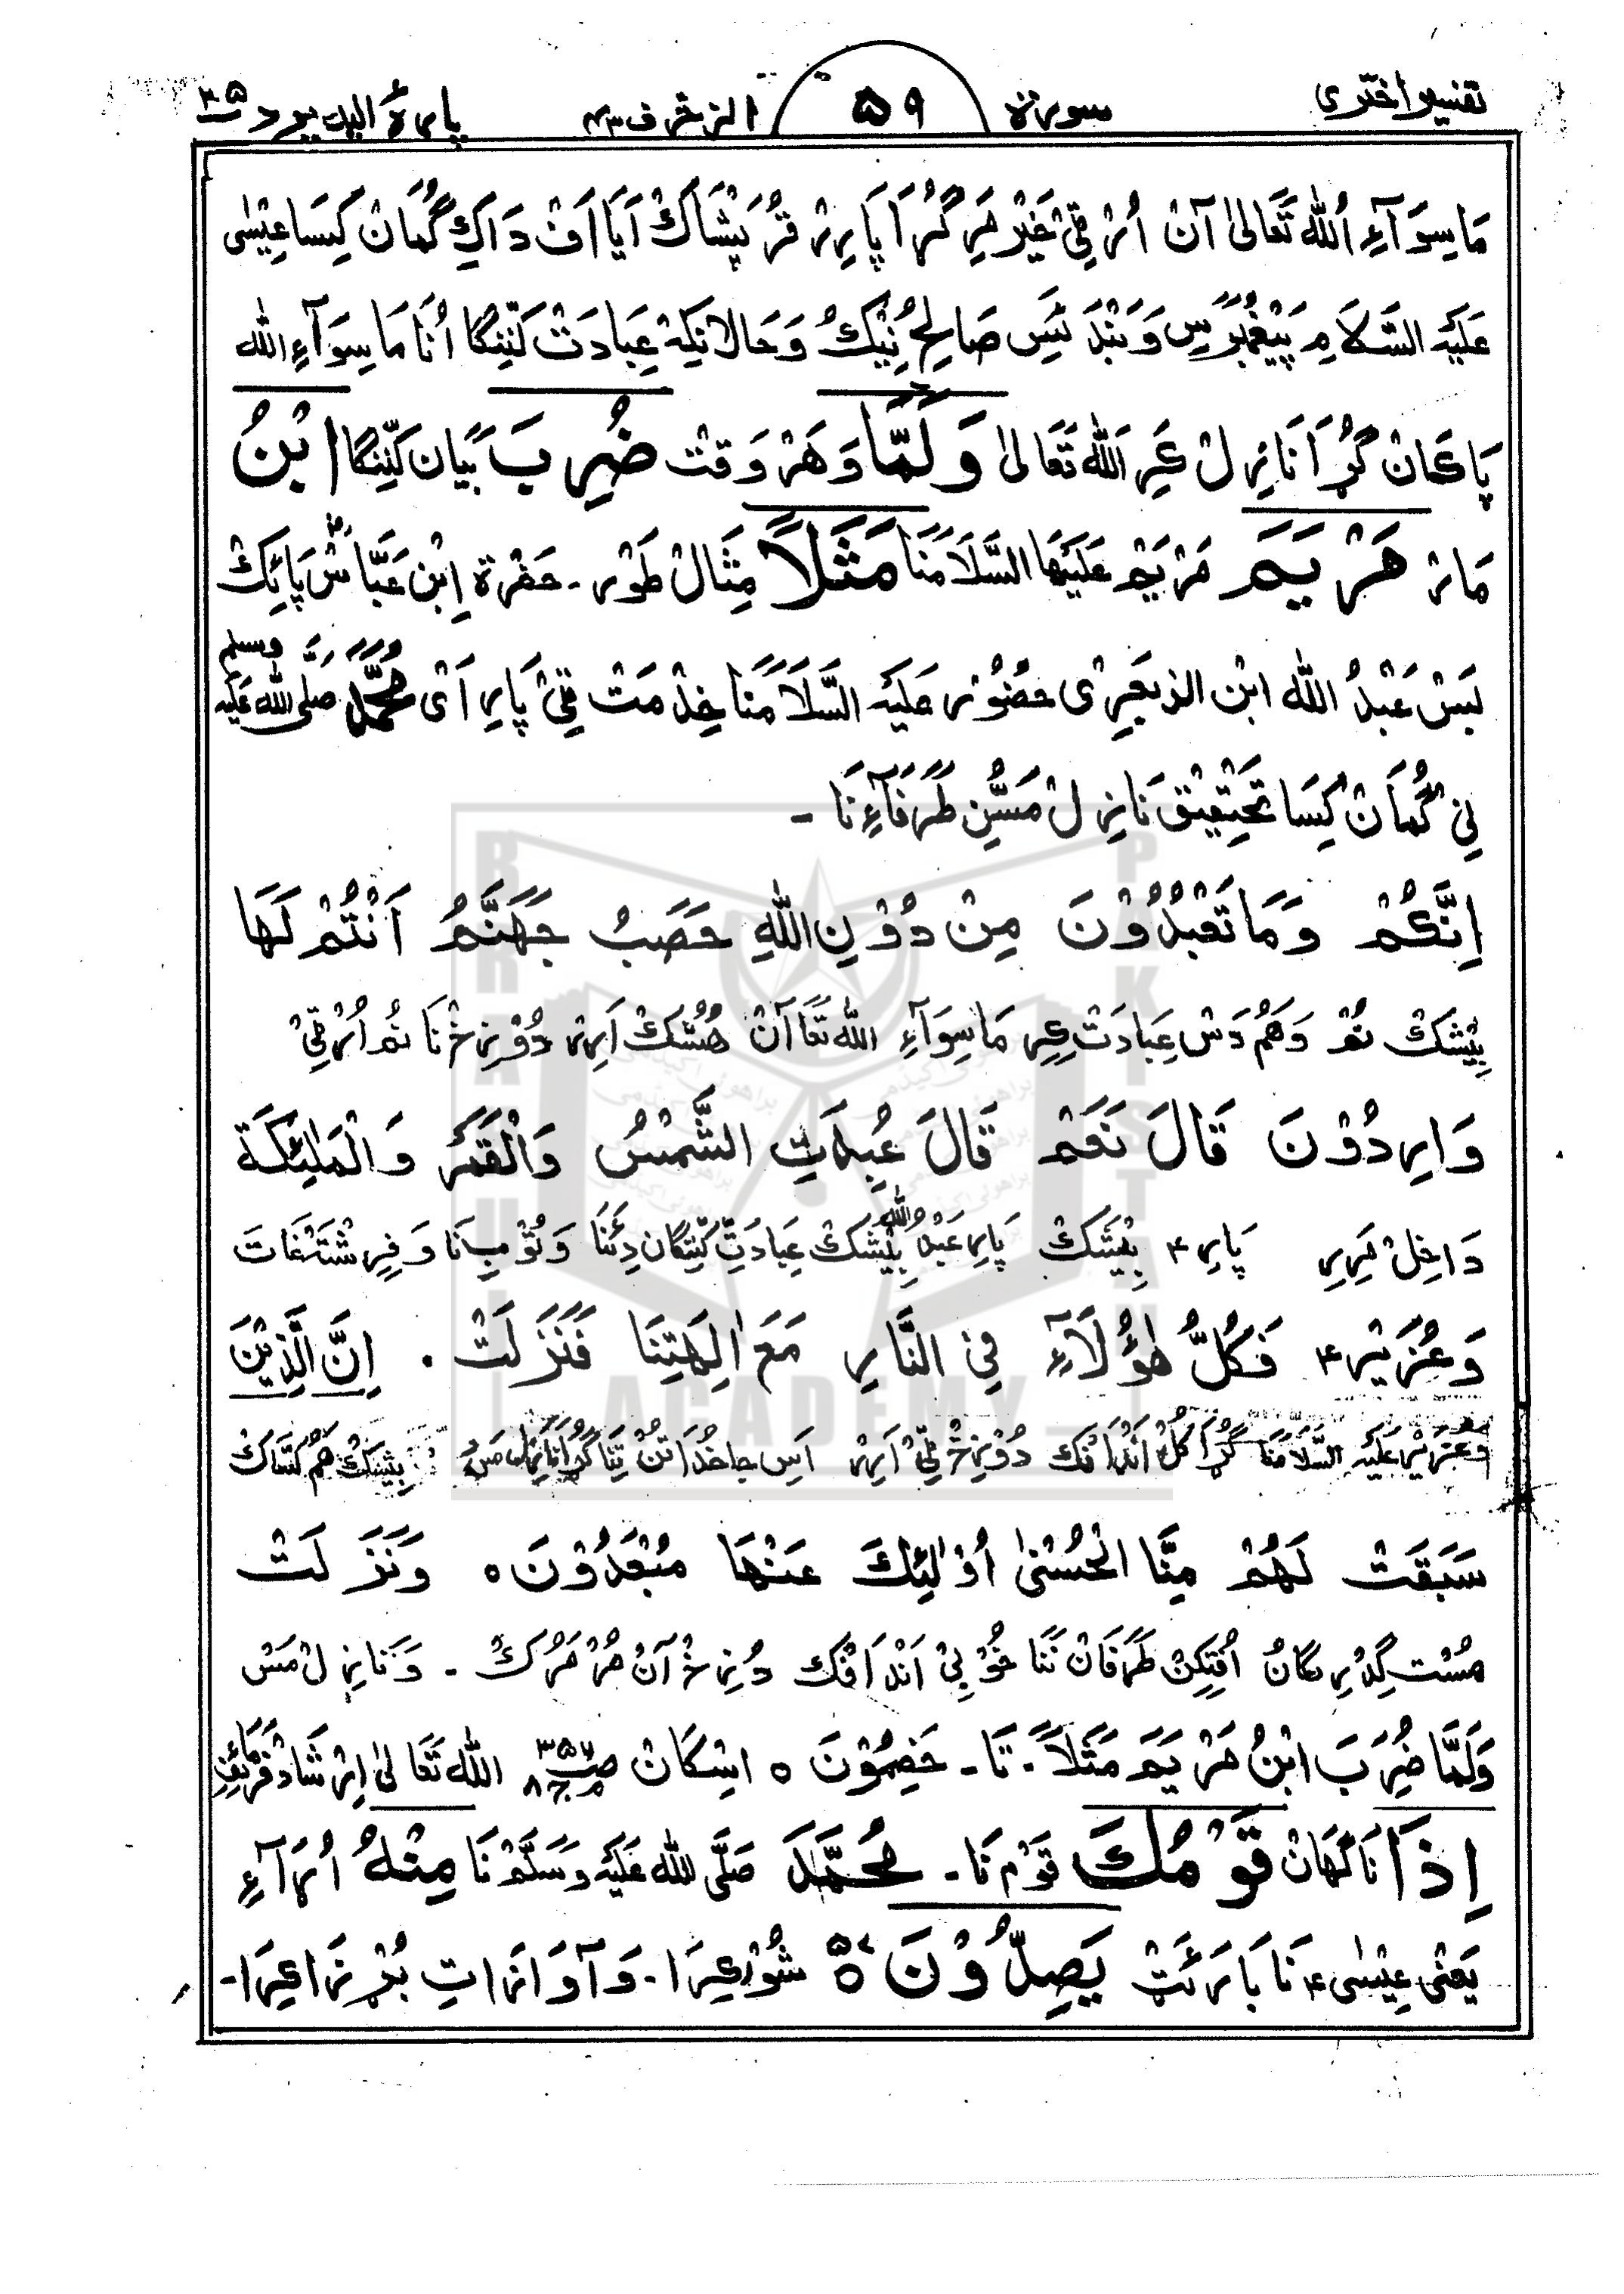 تفسیر اختری سورة ۵۹ الزخرف ۴۳ پارۀ الیه یرد ۲۵
مَاسِوَآءِ اللّٰه تَعَالىٰ آن اُرْقِیْ خَیْر مَر گُرَا پَارِرْ قُرَیْشَاکْ اَیَا اَفْ دَاکِ گُمَانْ کِسَا عِیْسٰی
عَلَیْهِ السَّلَامِ پَیْغَمْبَرْس وَ بَنْدَئَس صَالِح نِیْکُ وَحَالَانِکِه عِبَادَتْ کَنِّنْگَا اُنَا مَاسِوَآءِ اللّٰه
پَاکَانْ گُڑَا نَازِلْ کَرِ اَللّٰه تَعَالىٰ وَلَمَّا وَهَرْوَقت ضُرِبَ بَیَان کَنِّنْگَا ابْنُ
مَارْ مَرْيَمَ مَرْیَمْ عَلَیْهَا السَّلَامنَا مَثَلًا مِثَالْ طَوْر - حَضْرَة اِبْن عَبَّاسْ پَائِکْ
بَسْ عَبْدُ اللّٰه ابْن الزبعرٰی حضُوْر عَلَیْه السَّلَامنَا خِدْمَتْ قِیْ پَارِ اَیْ مُحَمَّد صلَّى اللّٰه عَلَیْه وسلم
نِیْ گُمَانْ کِسَا تَحْقِیْق نَازِلْ مَسُّنِ طَرَفَآءِ نَا -
اِنَّكُمْ وَمَا تَعْبُدُوْنَ مِنْ دُوْنِ اللّٰهِ حَصَبُ جَهَنَّمَ اَنْتُمْ لَهَا
بِیْشَکْ نُمْ وَهُمْ دَسْ عِبَادَتْ کِرِ مَاسِوَآءِ اللّٰه تَعَا آنْ هُشُکْ اَرِرْ دُوْزِخْ نَا نُمْ اُرْقِیْ
وَارِدُوْنَ قَالَ نَعَمْ قَالَ عُبِدَتِ الشَّمْسُ وَالْقَمَرُ وَالْمَلٰئِكَة
دَاخِلْ مَرِرِ پَارِ؞ بِیْشَکْ پَارِ عَبْدُ اللّٰه بِیْشَکْ عِبَادَتِ کَنِّنْگَان دِئنَا وَ تُوْبِنَا وَ فِرِشْتَغَاتَ
وَعُزَيْر؞ فَكُلُّ هٰؤُلَآءِ فِی النَّارِ مَعَ اٰلِهَتِنَا فَنَزَلَتْ . اِنَّ الَّذِيْنَ
وَعُزَیْر عَلَیْهِ السَّلَامنَا گُڑَا کُلْ اَنْدَافْک دُوْزِخْ قِیْ اَرِرْ بِیْشَکْ هَمْ کَسَّاکْ
سَبَقَتْ لَهُمْ مِنَّا الْحُسْنٰى اُوْلٰئِكَ عَنْهَا مُبْعَدُوْنَ ه وَنَزَلَتْ
مُسْت گِدْرِنگَانُ اُفْتِکِنْ طَرَفَانْ نَنَا خُوْبِیْ اَنْدَافْک دُزِخْ آنْ مُرْ مَرُکْ - وَ نَازِلْ مَسْ
وَلَمَّا ضُرِبَ ابْنُ مَرْيَمَ مَثَلًا. تَا - خَصِمُوْنَ ه اسِکَانْ اللّٰه تَعَالىٰ اِرْشَاد فَرْمَائِفِ
اِذَا نَاگَهَانْ قَوْمُكَ قَوْم نَا - مُحَمَّدَ صَلَّى اللّٰه عَلَیْه وَسَلَّمْ نَا مِنْهُ اُرَآءِ
یَعْنٰی عِیْسٰی؞ نَا بَارَئَتْ يَصِدُّوْنَ ۵۷ شُوْرْ کِرَا. وَ آوَازَاتِ بُرْزَا کِرَا -